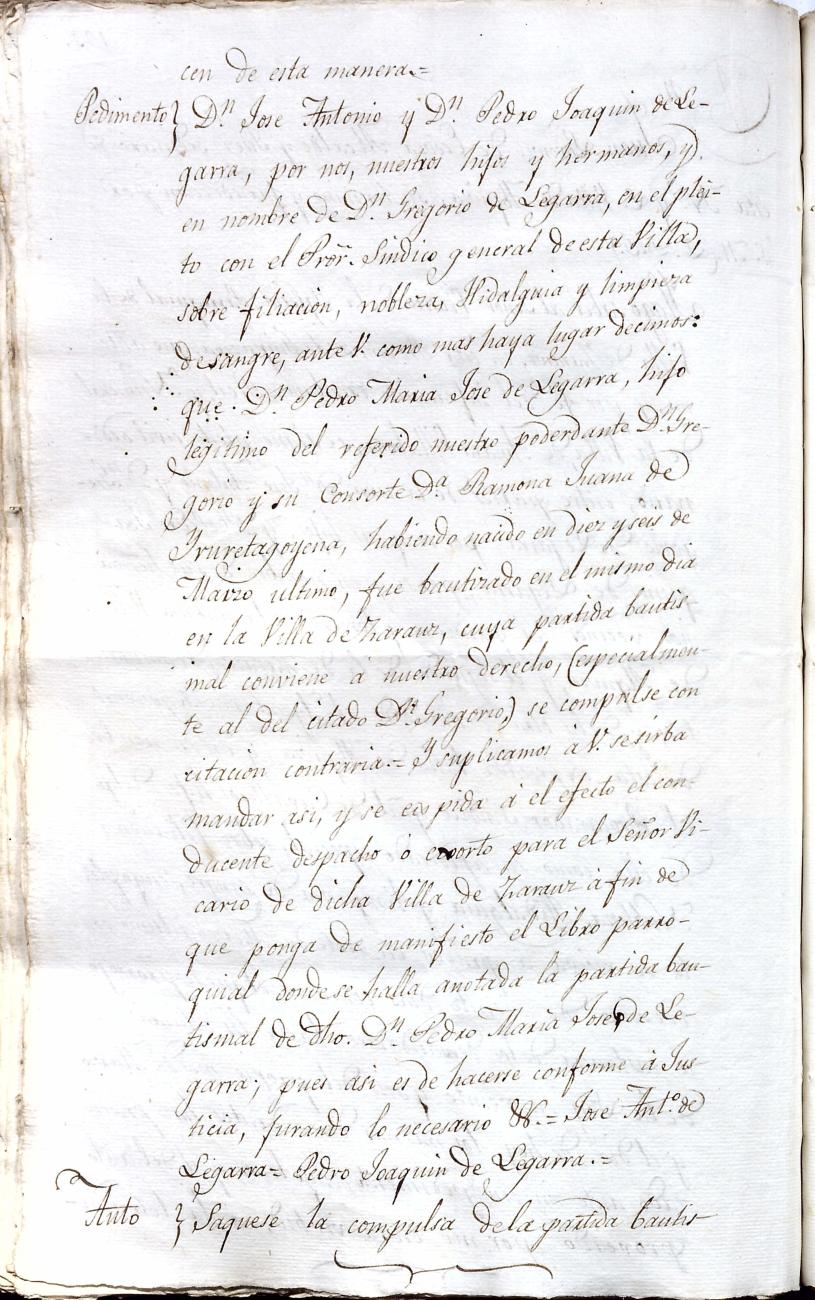 cen de esta manera.=
Pedimento } Dn. Jose Antonio y Dn. Pedro Joaquin de Le-
garra, por nos, nuestros hijos y hermanos, y
en nombre de Dn. Gregorio de Legarra, en el pley-
to con el Pror. Sindico general de esta Villa,
sobre filiacion, nobleza, Hidalguia y limpieza
de sangre, ante V. como mas haya lugar decimos:
que Dn. Pedro Maria Jose de Legarra, hijo
legitimo del referido nuestro poderdante Dn. Gre-
gorio y su Consorte Da. Ramona Juana de
Yruretagoyena, habiendo nacido en diez y seis de
Marzo ultimo, fue bautizado en el mismo dia
en la Villa de Zarauz, cuya partida bautis-
mal conviene á nuestro derecho, (especialmen-
te al del citado Dn. Gregorio,) se compulse con
citacion contraria.= Y suplicamos á V. se sirba
mandar asi, y se expida á el efecto el con-
ducente despacho ó exorto para el Señor Vi-
cario de dicha Villa de Zarauz á fin de
que ponga de manifiesto el Libro parro-
quial donde se halla anotada la partida bau-
tismal de dho. Dn. Pedro Maria Jose de Le-
garra; pues asi es de hacerse conforme á Jus-
ticia, jurando lo necesario &c.= Jose Anto. de
Legarra= Pedro Joaquin de Legarra.=
Auto } Saquese la compulsa de la partida bautis-